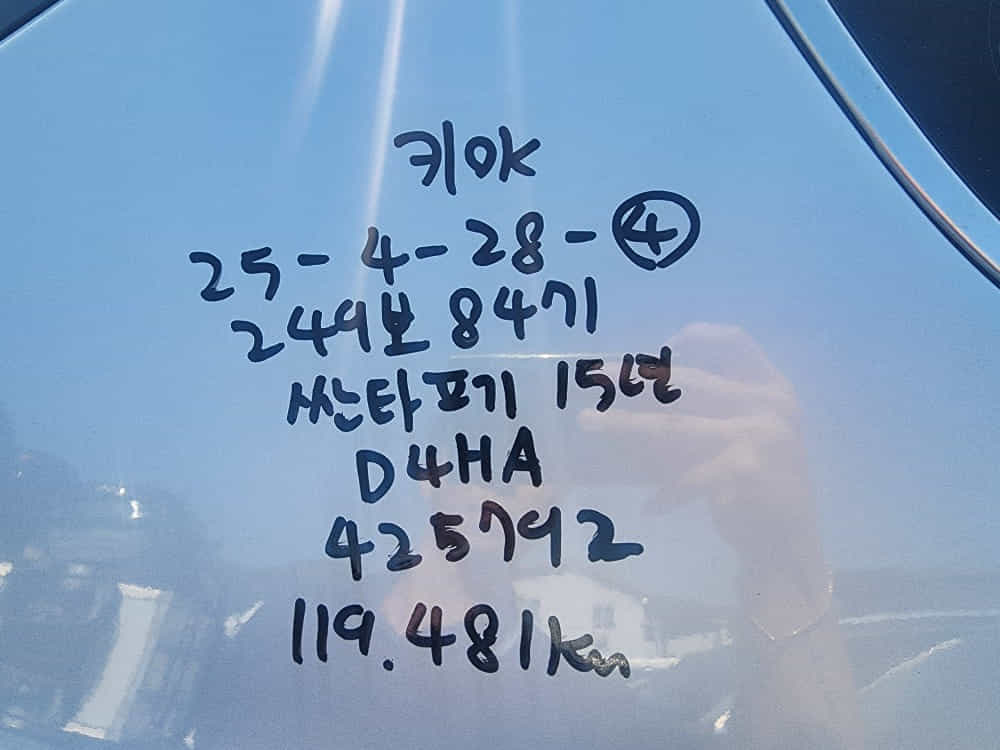 키OK
25-4-28-④
249보8471
싼타표기 15년
D4HA
425792
119.481km